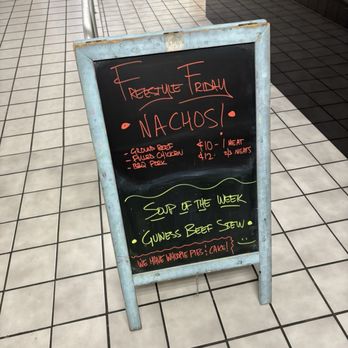 FREESTYLE FRIDAY
• NACHOS! •
- GROUND BEEF $10 - 1 MEAT
- PULLED CHICKEN $12 - 2/3 MEATS
- BBQ PORK
SOUP OF THE WEEK
• GUINESS BEEF STEW •
WE HAVE WHOOPIE PIES & CAKE!